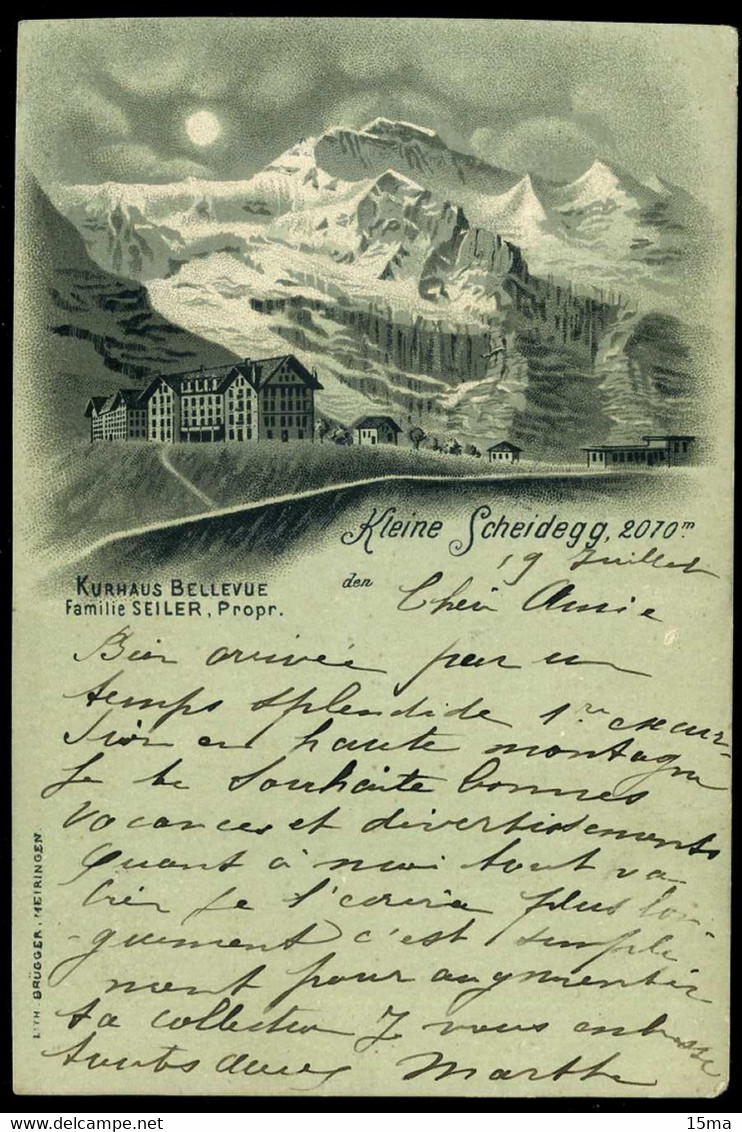 Kleine Scheidegg, 2070 m
KURHAUS BELLEVUE
Familie SEILER, Propr.
den 19 Juillet
Chère Amie
Bien arrivée par un
temps splendide 1re excur-
sion en haute montagne
Je te souhaite bonnes
vacances et divertissements
Quant à moi tout va
bien je t'écrirai plus lon-
guement c'est simple
ment pour augmenter
ta collection J vous embrasse
toutes deux Marthe
LITH. BRÜGGER, MEIRINGEN
15ma